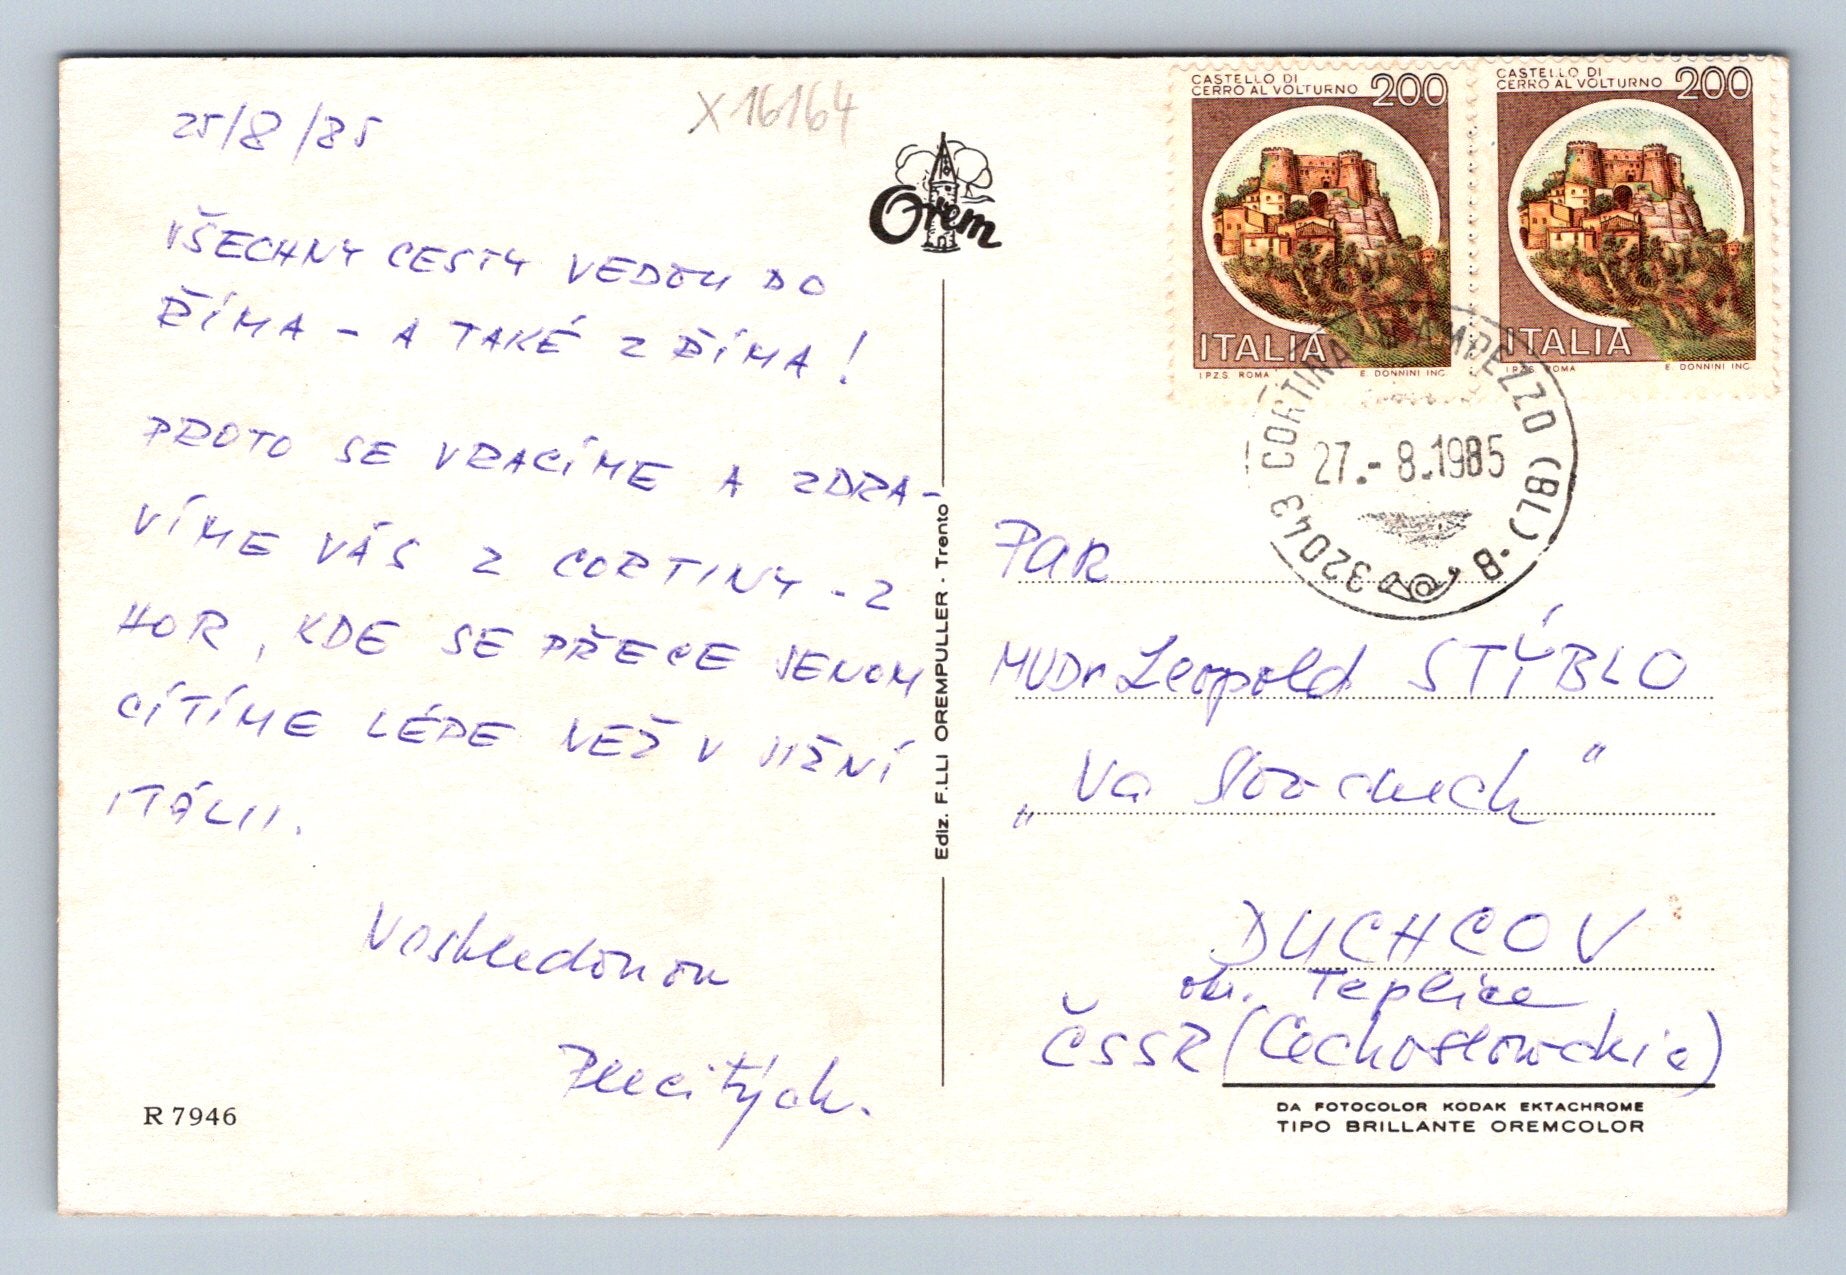 25/8/85
X 16164
VŠECHNY CESTY VEDOU DO
ŘÍMA - A TAKÉ Z ŘÍMA!
PROTO SE VRACÍME A ZDRA-
VÍME VÁS Z CORTINY - Z
HOR, KDE SE PŘECE JENOM
CÍTÍME LÉPE NEŽ V JIŽNÍ
ITÁLII.
R 7946
Orem
Ediz. F.LLI OREMPULLER - Trento
CASTELLO DI
CERRO AL VOLTURNO 200
ITALIA
I.P.Z.S. ROMA E. DONNINI INC.
CASTELLO DI
CERRO AL VOLTURNO 200
ITALIA
I.P.Z.S. ROMA E. DONNINI INC.
32043 CORTINA D'AMPEZZO (BL) - B
27.-8.1985
PAR
MUDr Leopold STÝBLO
„Na "
DUCHCOV
ok. Teplice
ČSSR (Cechoslovackia)
DA FOTOCOLOR KODAK EKTACHROME
TIPO BRILLANTE OREMCOLOR